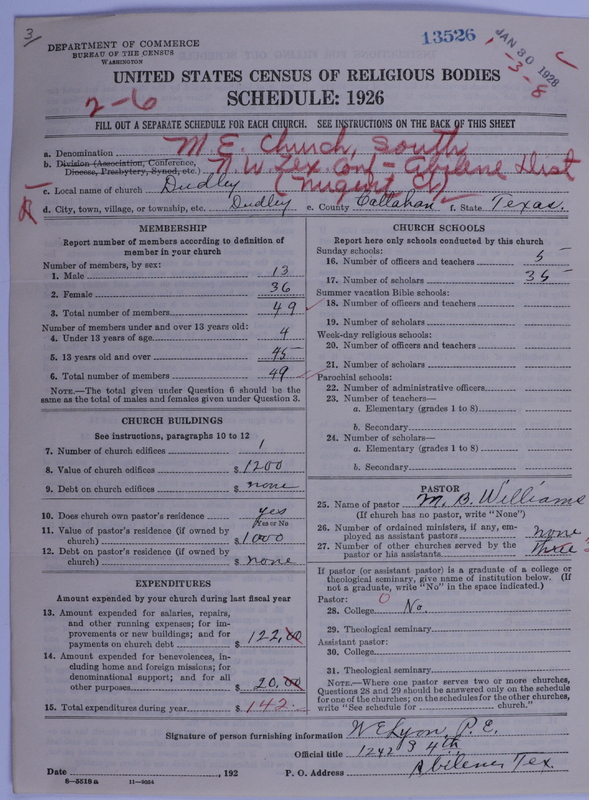 3
DEPARTMENT OF COMMERCE
BUREAU OF THE CENSUS
WASHINGTON
13526
JAN 30 1928
-3-8
UNITED STATES CENSUS OF RELIGIOUS BODIES
SCHEDULE: 1926
2-6
FILL OUT A SEPARATE SCHEDULE FOR EACH CHURCH. SEE INSTRUCTIONS ON THE BACK OF THIS SHEET
a. Denomination M. E. Church, South
b. Division (Association, Conference, Diocese, Presbytery, Synod, etc.) N. W. Tex Conf - Abilene Dist
c. Local name of church Dudley (Nugent Ct)
d. City, town, village, or township, etc. Dudley e. County Callahan f. State Texas.
MEMBERSHIP
Report number of members according to definition of member in your church
Number of members, by sex:
1. Male 13
2. Female 36
3. Total number of members 49
Number of members under and over 13 years old:
4. Under 13 years of age 4
5. 13 years old and over 45
6. Total number of members 49
NOTE.—The total given under Question 6 should be the same as the total of males and females given under Question 3.
CHURCH BUILDINGS
See instructions, paragraphs 10 to 12
7. Number of church edifices 1
8. Value of church edifices $ 1200
9. Debt on church edifices $ none
10. Does church own pastor's residence yes
Yes or No
11. Value of pastor's residence (if owned by church) $ 1000
12. Debt on pastor's residence (if owned by church) $ none
EXPENDITURES
Amount expended by your church during last fiscal year
13. Amount expended for salaries, repairs, and other running expenses; for improvements or new buildings; and for payments on church debt $ 122.00
14. Amount expended for benevolences, including home and foreign missions; for denominational support; and for all other purposes $ 20.00
15. Total expenditures during year $ 142
CHURCH SCHOOLS
Report here only schools conducted by this church
Sunday schools:
16. Number of officers and teachers 5
17. Number of scholars 35
Summer vacation Bible schools:
18. Number of officers and teachers
19. Number of scholars
Week-day religious schools:
20. Number of officers and teachers
21. Number of scholars
Parochial schools:
22. Number of administrative officers
23. Number of teachers—
a. Elementary (grades 1 to 8)
b. Secondary
24. Number of scholars—
a. Elementary (grades 1 to 8)
b. Secondary
PASTOR
25. Name of pastor M. B. Williams
(If church has no pastor, write "None")
26. Number of ordained ministers, if any, employed as assistant pastors none
27. Number of other churches served by the pastor or his assistants Three 3
If pastor (or assistant pastor) is a graduate of a college or theological seminary, give name of institution below. (If not a graduate, write "No" in the space indicated.)
Pastor: 0
28. College No
29. Theological seminary
Assistant pastor:
30. College
31. Theological seminary
NOTE.—Where one pastor serves two or more churches, Questions 28 and 29 should be answered only on the schedule for one of the churches; on the schedules for the other churches, write "See schedule for church."
Signature of person furnishing information W E Lyon, P. E.
Official title 1242 S 4th
Date , 192 P. O. Address Abilene Tex
8-5518a 11-9994